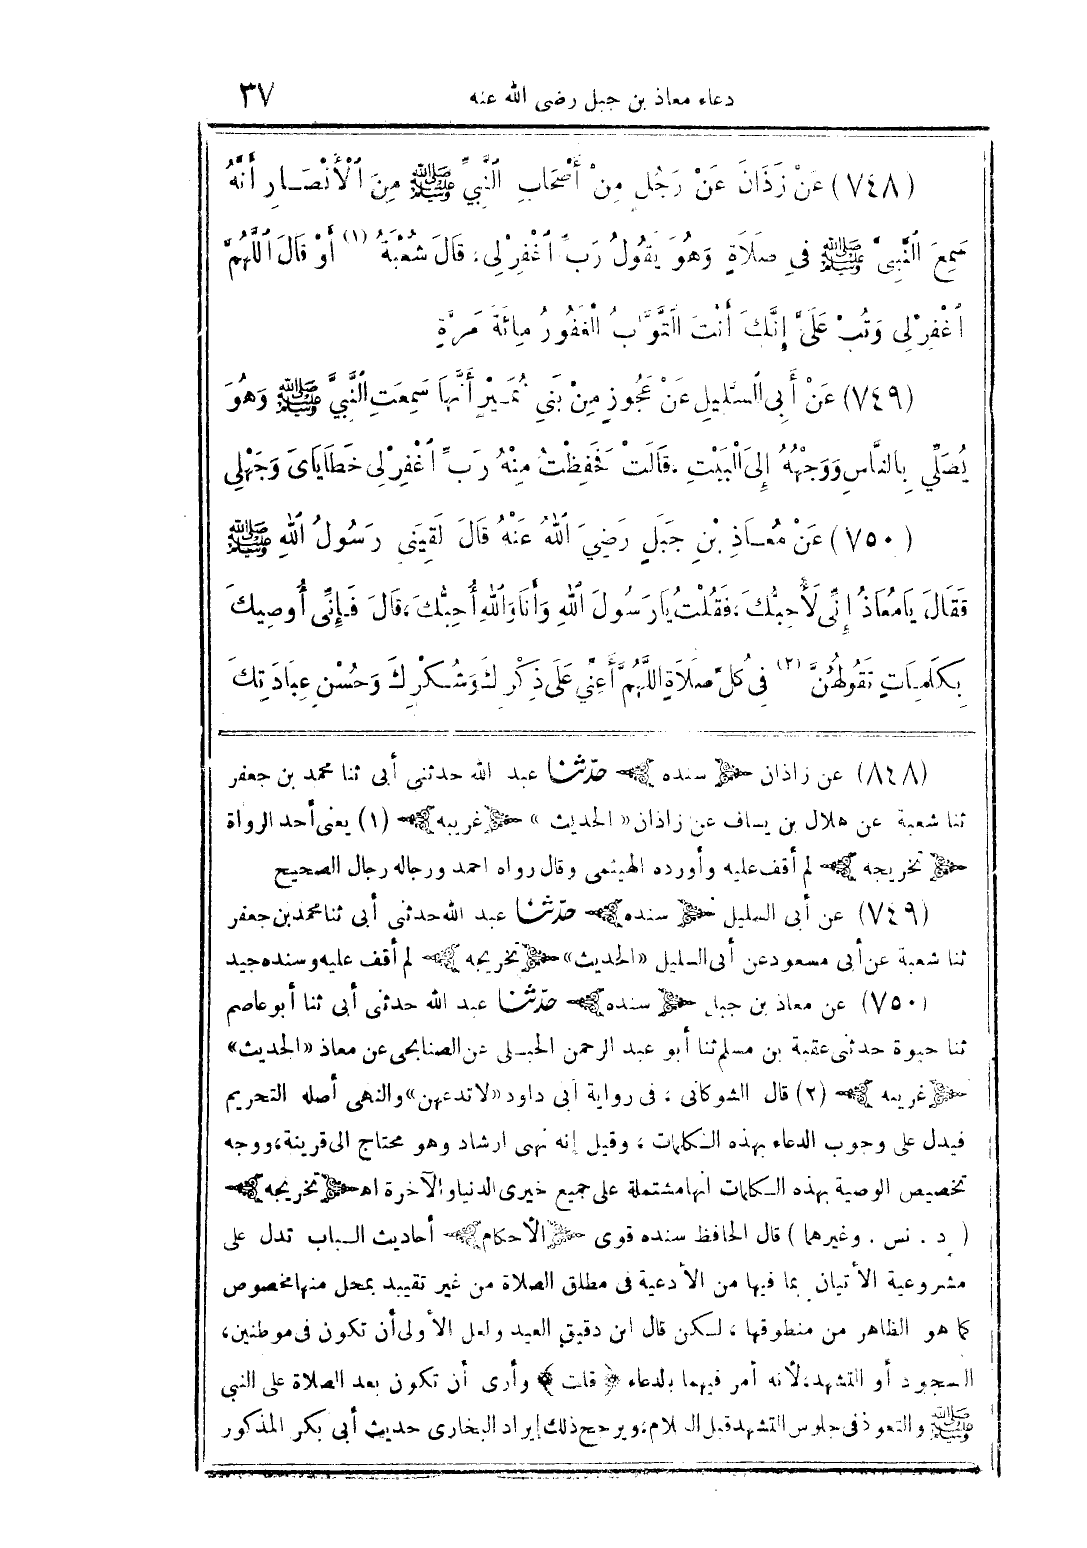 دعاء معاذ بن جبل رضى الله عنه ٣٧
(٧٤٨) عَنْ زَذَانَ عَنْ رَجُلٍ مِنْ أَصْحَابِ النَّبِيِّ ﷺ مِنَ الْأَنْصَارِ أَنَّهُ
سَمِعَ النَّبِيَّ ﷺ فِي صَلَاةٍ وَهُوَ يَقُولُ رَبِّ اغْفِرْ لِى، قَالَ شُعْبَةُ (١) أَوْ قَالَ اللَّهُمَّ
اغْفِرْ لِى وَتُبْ عَلَىَّ إِنَّكَ أَنْتَ التَّوَّابُ الْغَفُورُ مِائَةَ مَرَّةٍ
(٧٤٩) عَنْ أَبِى السَّلِيلِ عَنْ عَجُوزٍ مِنْ بَنِي نُمَيْرٍ أَنَّهَا سَمِعَتِ النَّبِيَّ ﷺ وَهُوَ
يُصَلِّي بِالنَّاسِ وَوَجْهُهُ إِلَى الْبَيْتِ، قَالَتْ فَحَفِظْتُ مِنْهُ رَبِّ اغْفِرْ لِى خَطَايَاىَ وَجَهْلِى
(٧٥٠) عَنْ مُعَاذِ بْنِ جَبَلٍ رَضِيَ اللهُ عَنْهُ قَالَ لَقِيَنِى رَسُولُ اللهِ ﷺ
فَقَالَ يَا مُعَاذُ إِنِّى لَأُحِبُّكَ، فَقُلْتُ يَا رَسُولَ اللهِ وَأَنَا وَاللهِ أُحِبُّكَ، قَالَ فَإِنِّى أُوصِيكَ
بِكَلِمَاتٍ تَقُولُهُنَّ (٢) فِى كُلِّ صَلَاةٍ اللَّهُمَّ أَعِنِّي عَلَى ذِكْرِكَ وَشُكْرِكَ وَحُسْنِ عِبَادَتِكَ
(٨٤٨) عن زاذان ﴿ سنده ﴾ حدّثنا عبد الله حدثنى أبى ثنا محمد بن جعفر
ثنا شعبة عن هلال بن يساف عن زاذان «الحديث» ﴿غريبه﴾ (١) يعنى أحد الرواة
﴿ تخريجه ﴾ لم أقف عليه وأورده الهيثمى وقال رواه احمد ورجاله رجال الصحيح
(٧٤٩) عن أبى السليل ﴿ سنده ﴾ حدّثنا عبد الله حدثنى أبى ثنا محمد بن جعفر
ثنا شعبة عن أبى مسعود عن أبى السليل «الحديث» ﴿تخريجه﴾ لم أقف عليه وسنده جيد
(٧٥٠) عن معاذ بن جبل ﴿ سنده ﴾ حدّثنا عبد الله حدثنى أبى ثنا أبو عاصم
ثنا حيوة حدثنى عقبة بن مسلم ثنا أبو عبد الرحمن الحبلى عن الصنابحى عن معاذ «الحديث»
﴿غريبه﴾ (٢) قال الشوكانى ، فى رواية أبى داود «لا تدعهن» والنهى أصله التحريم
فيدل على وجوب الدعاء بهذه الكلمات ، وقيل إنه نهى ارشاد وهو محتاج الى قرينة، ووجه
تخصيص الوصية بهذه الكلمات انها مشتملة على جميع خيرى الدنيا والآخرة اه ﴿تخريجه﴾
( د . نس . وغيرهما ) قال الحافظ سنده قوى ﴿الأحكام﴾ أحاديث الباب تدل على
مشروعية الأتيان بما فيها من الأدعية فى مطلق الصلاة من غير تقييد بمحل منها مخصوص
كما هو الظاهر من منطوقها ، لكن قال ابن دقيق العيد ولعل الأولى أن تكون فى موطنين،
السجود أو التشهد، لأنه أمر فيهما بالدعاء ﴿ قلت ﴾ وأرى أن تكون بعد الصلاة على النبي
ﷺ والتعوذ فى جلوس التشهد قبل السلام، ويرجح ذلك إيراد البخارى حديث أبى بكر المذكور